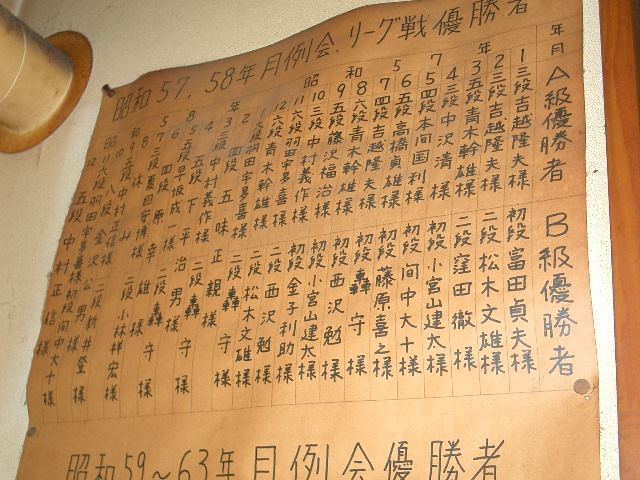 昭和57.58年月例会.リーグ戦優勝者
年月 A級優勝者 B級優勝者
1 三段吉越隆夫様 初段富田貞夫様
2 三段吉越隆夫様 二段松木文雄様
3 五段青木幹雄様 二段窪田徹様
4 三段中沢清様 初段小宮山建太様
5 四段本間国利様 初段間中大十様
6 五段高橋貞雄様 初段藤原喜之様
7 四段吉越隆夫様 初段轟守様
8 六段青木幹雄様 初段西沢勉様
9 五段藤沢福治様 初段小宮山建太様
10 三段中村義作様 初段金子利助様
11 六段羽田宇多喜様 二段西沢勉様
12 六段青木幹雄様 二段松木文雄様
昭和57年
1 六段羽田宇多喜様 二段轟守様
2 四段五味正親様
3 三段中村義作様 二段轟守様
4 五段下平治男様
5 五段早坂成一様 二段轟守様
6 四段原幸雄様
7 三段夏目安博様
8 休み 二段小林祥宏様
五段中村正信様
六段金沢公男様 二段新井登様
六段羽田宇多喜様 初段間中大十様
12 五段中村正信様
昭和59～63年月例会優勝者